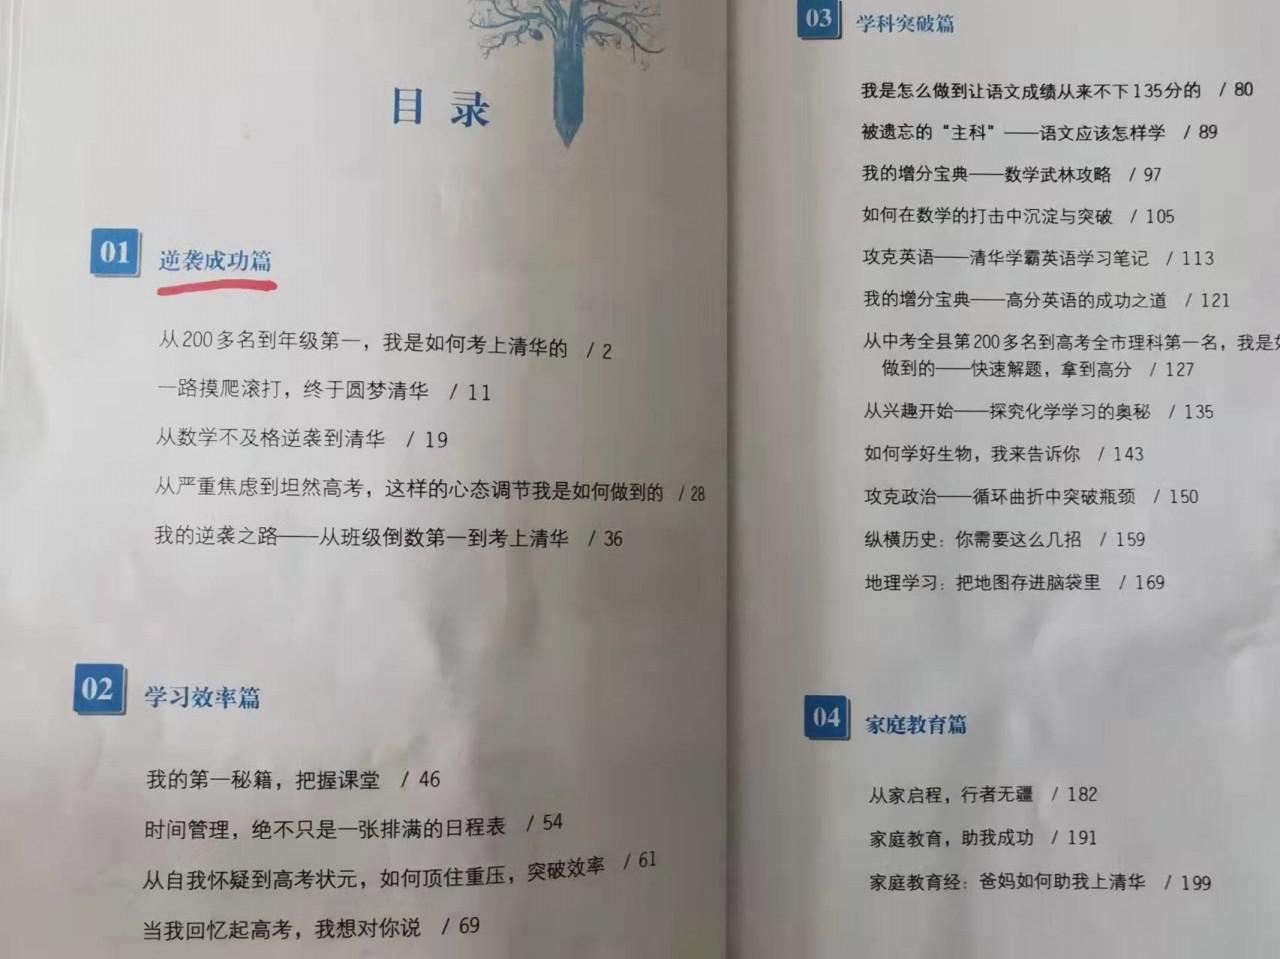 目录
01 逆袭成功篇
从200多名到年级第一，我是如何考上清华的 / 2
一路摸爬滚打，终于圆梦清华 / 11
从数学不及格逆袭到清华 / 19
从严重焦虑到坦然高考，这样的心态调节我是如何做到的 / 28
我的逆袭之路——从班级倒数第一到考上清华 / 36
02 学习效率篇
我的第一秘籍，把握课堂 / 46
时间管理，绝不只是一张排满的日程表 / 54
从自我怀疑到高考状元，如何顶住重压，突破效率 / 61
当我回忆起高考，我想对你说 / 69
03 学科突破篇
我是怎么做到让语文成绩从来不下135分的 / 80
被遗忘的“主科”——语文应该怎样学 / 89
我的增分宝典——数学武林攻略 / 97
如何在数学的打击中沉淀与突破 / 105
攻克英语——清华学霸英语学习笔记 / 113
我的增分宝典——高分英语的成功之道 / 121
从中考全县第200多名到高考全市理科第一名，我是
做到的——快速解题，拿到高分 / 127
从兴趣开始——探究化学学习的奥秘 / 135
如何学好生物，我来告诉你 / 143
攻克政治——循环曲折中突破瓶颈 / 150
纵横历史：你需要这么几招 / 159
地理学习：把地图存进脑袋里 / 169
04 家庭教育篇
从家启程，行者无疆 / 182
家庭教育，助我成功 / 191
家庭教育经：爸妈如何助我上清华 / 199